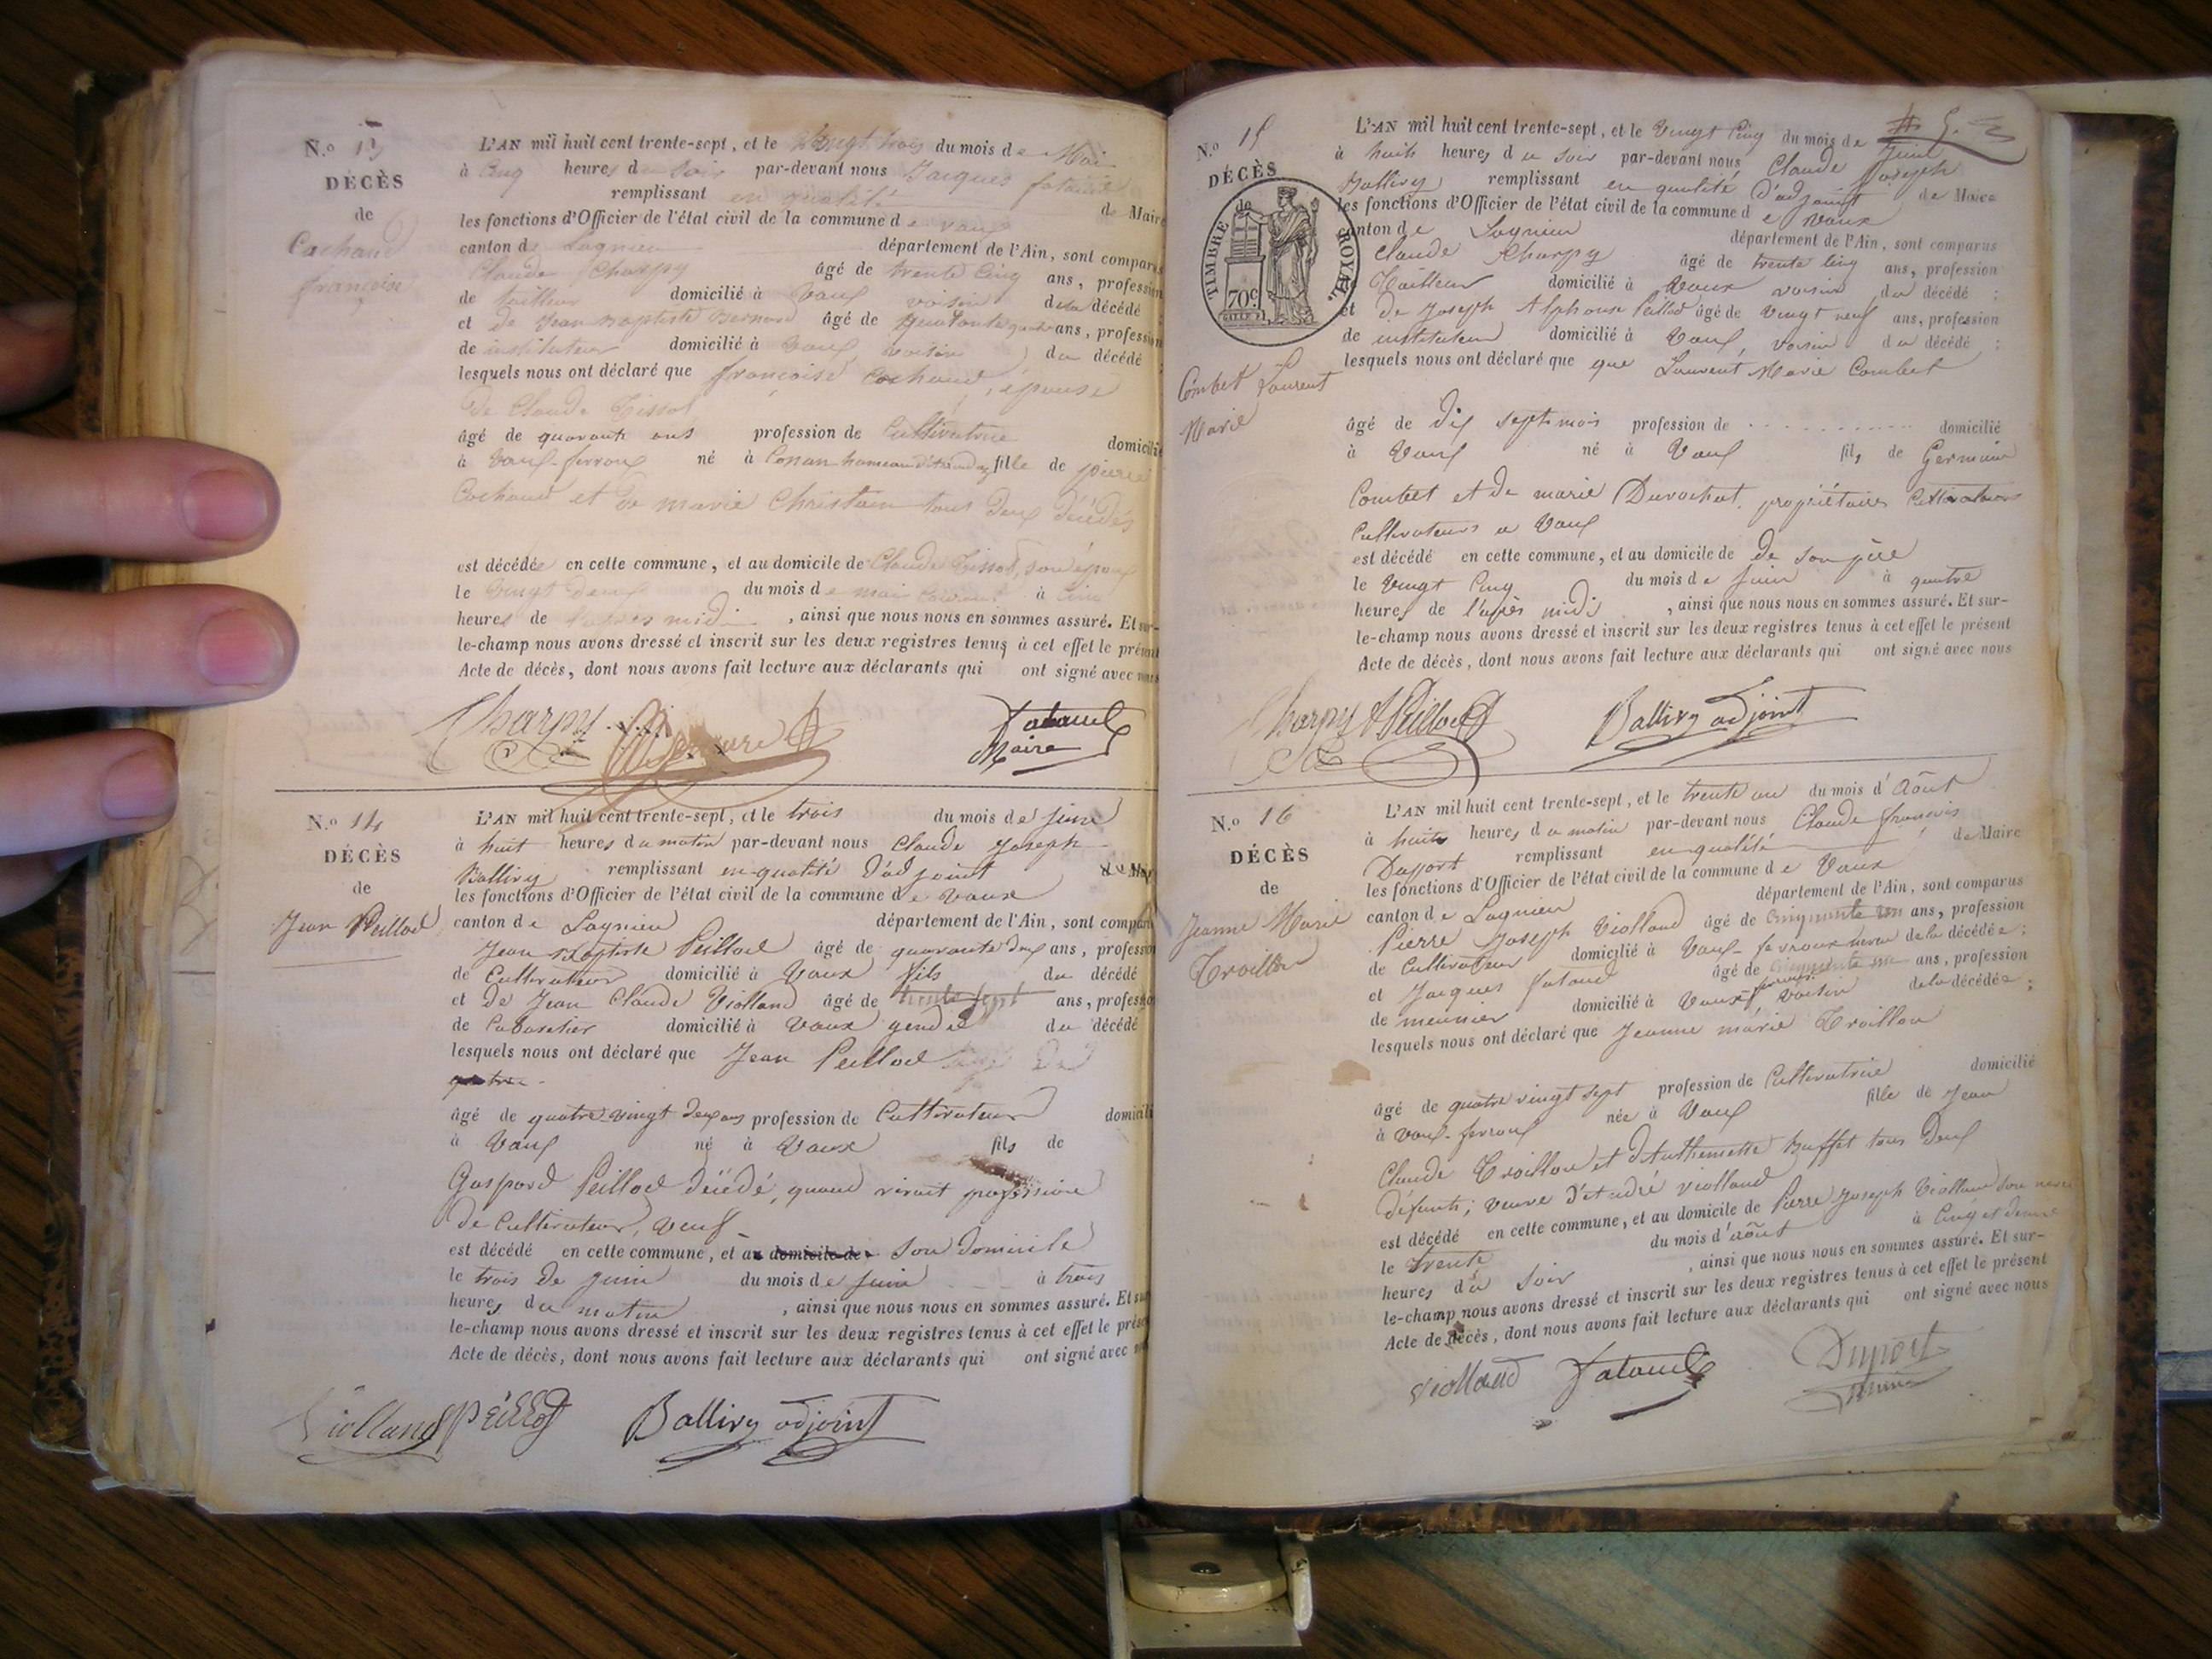 N.o 13
DÉCÈS
de
Cochaud
françoise
L'AN mil huit cent trente-sept, et le Vingt trois du mois de Mai
à Cinq heures du soir par-devant nous Jacques fataud
remplissant en qualité de Maire
les fonctions d'Officier de l'état civil de la commune de vaux
canton de Lagnieu département de l'Ain, sont comparus
Claude Charpy âgé de trente Cinq ans, profession
de tailleur domicilié à Vaux voisin de la décédé
et de Jean Baptiste Bernard âgé de ans, profession
de instituteur domicilié à Vaux voisin du décédé
lesquels nous ont déclaré que françoise Cochaud, épouse
de Claude Tissot
âgé de quarante ans profession de Cultivatrice domicilié
à Vaux-ferroux né à Conan hameau fille de pierre
Cochaud et de marie Christain tous deux décédés
est décédée en cette commune, et au domicile de Claude Tissot, son époux
le vingt deux du mois de mai courant à cinq
heures de l'après midi, ainsi que nous nous en sommes assuré. Et sur-
le-champ nous avons dressé et inscrit sur les deux registres tenus à cet effet le présent
Acte de décès, dont nous avons fait lecture aux déclarants qui ont signé avec nous
Charpy Bernard fataud
Maire
N.o 14
DÉCÈS
de
Jean Peillod
L'AN mil huit cent trente-sept, et le trois du mois de juin
à huit heures du matin par-devant nous Claude Joseph
Ballivy remplissant en qualité d'adjoint de Maire
les fonctions d'Officier de l'état civil de la commune de Vaux
canton de Lagnieu département de l'Ain, sont comparus
Jean Baptiste Peillod âgé de quarante deux ans, profession
de Cultivateur domicilié à Vaux fils du décédé
et de Jean Claude Violland âgé de trente sept ans, profession
de Cabaretier domicilié à Vaux gendre du décédé
lesquels nous ont déclaré que Jean Peillod
âgé de quatre vingt deux ans profession de Cultivateur domicilié
à Vaux né à Vaux fils de
Gaspard Peillod décédé, quand vivait profession
de Cultivateur, veuf
est décédé en cette commune, et au domicile de son domicile
le trois de juin du mois de juin à trois
heures du matin, ainsi que nous nous en sommes assuré. Et sur
le-champ nous avons dressé et inscrit sur les deux registres tenus à cet effet le présent
Acte de décès, dont nous avons fait lecture aux déclarants qui ont signé avec
Violland Peillod Ballivy adjoint
N.o 15
DÉCÈS
de
TIMBRE ROYAL.
70c.
Combet Laurent
Marie
L'AN mil huit cent trente-sept, et le Vingt Cinq du mois de Juin
à huit heures du soir par-devant nous Claude Joseph
Ballivy remplissant en qualité d'adjoint de Maire
les fonctions d'Officier de l'état civil de la commune de Vaux
canton de Lagnieu département de l'Ain, sont comparus
Claude Charpy âgé de trente cinq ans, profession
Tailleur domicilié à Vaux voisin du décédé ;
et de Joseph Alphonse Peillod âgé de vingt neuf ans, profession
de instituteur domicilié à Vaux, voisin du décédé ;
lesquels nous ont déclaré que que Laurent Marie Combet
âgé de dix sept mois profession de domicilié
à Vaux né à Vaux fils de Germain
Combet et de marie Durochat, propriétaires Cultivateurs
Cultivateurs a Vaux
est décédé en cette commune, et au domicile de de son père
le Vingt Cinq du mois de juin à quatre
heures de l'après midi, ainsi que nous nous en sommes assuré. Et sur-
le-champ nous avons dressé et inscrit sur les deux registres tenus à cet effet le présent
Acte de décès, dont nous avons fait lecture aux déclarants qui ont signé avec nous
Charpy A Peillod Ballivy adjoint
N.o 16
DÉCÈS
de
Jeanne Marie
Troillon
L'AN mil huit cent trente-sept, et le trente un du mois d'Août
à huit heures du matin par-devant nous Claude françois
Duport remplissant en qualité de Maire
les fonctions d'Officier de l'état civil de la commune de Vaux
canton de Lagnieu département de l'Ain, sont comparus
Pierre Joseph Violland âgé de cinquante un ans, profession
de Cultivateur domicilié à Vaux-ferroux neveu de la décédée ;
et Jacques fataud âgé de cinquante un ans, profession
de meunier domicilié à Vaux-ferroux voisin de la décédée ;
lesquels nous ont déclaré que Jeanne marie Troillon
âgé de quatre vingt sept profession de Cultivatrice domicilié
à vaux-ferroux née à Vaux fille de Jean
Claude Troillon et d'Anthemette Buffet tous deux
défunts ; veuve d'André violland
est décédé en cette commune, et au domicile de Pierre Joseph Violland son neveu
le trente du mois d'août à Cinq et demie
heures du soir, ainsi que nous nous en sommes assuré. Et sur-
le-champ nous avons dressé et inscrit sur les deux registres tenus à cet effet le présent
Acte de décès, dont nous avons fait lecture aux déclarants qui ont signé avec nous
Violland fataud Duport
maire